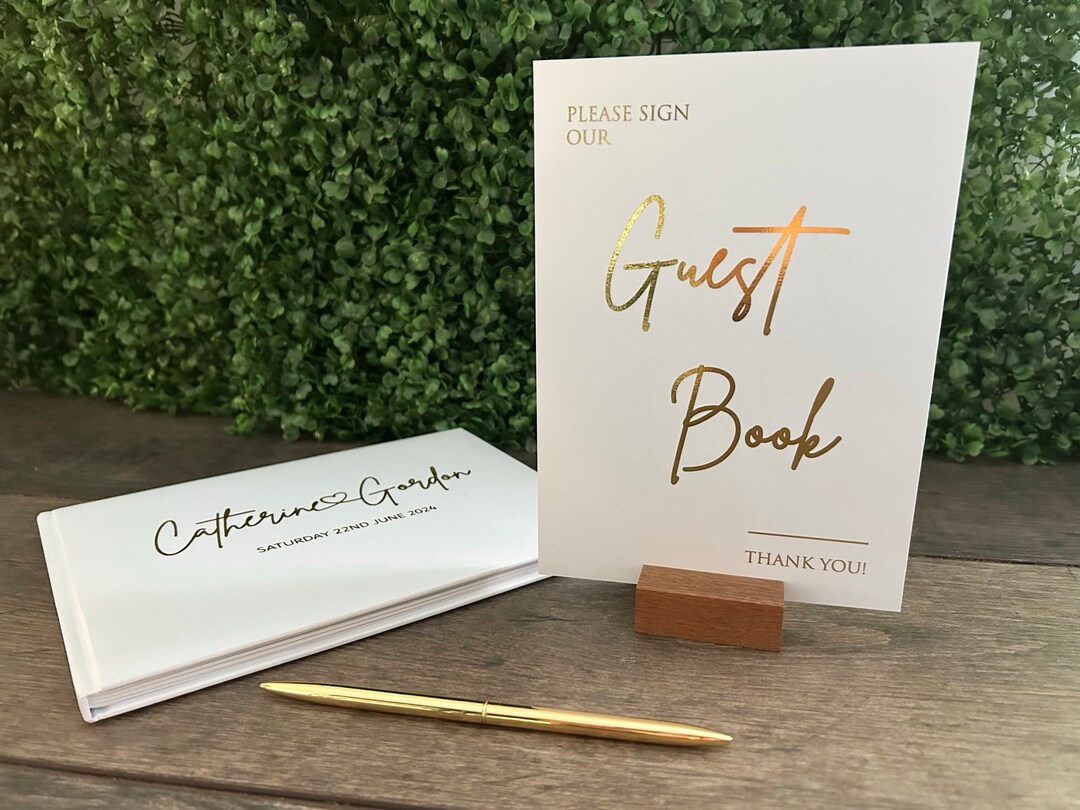 PLEASE SIGN
OUR
Guest
Book
THANK YOU!
Catherine♡Gordon
SATURDAY 22ND JUNE 2024